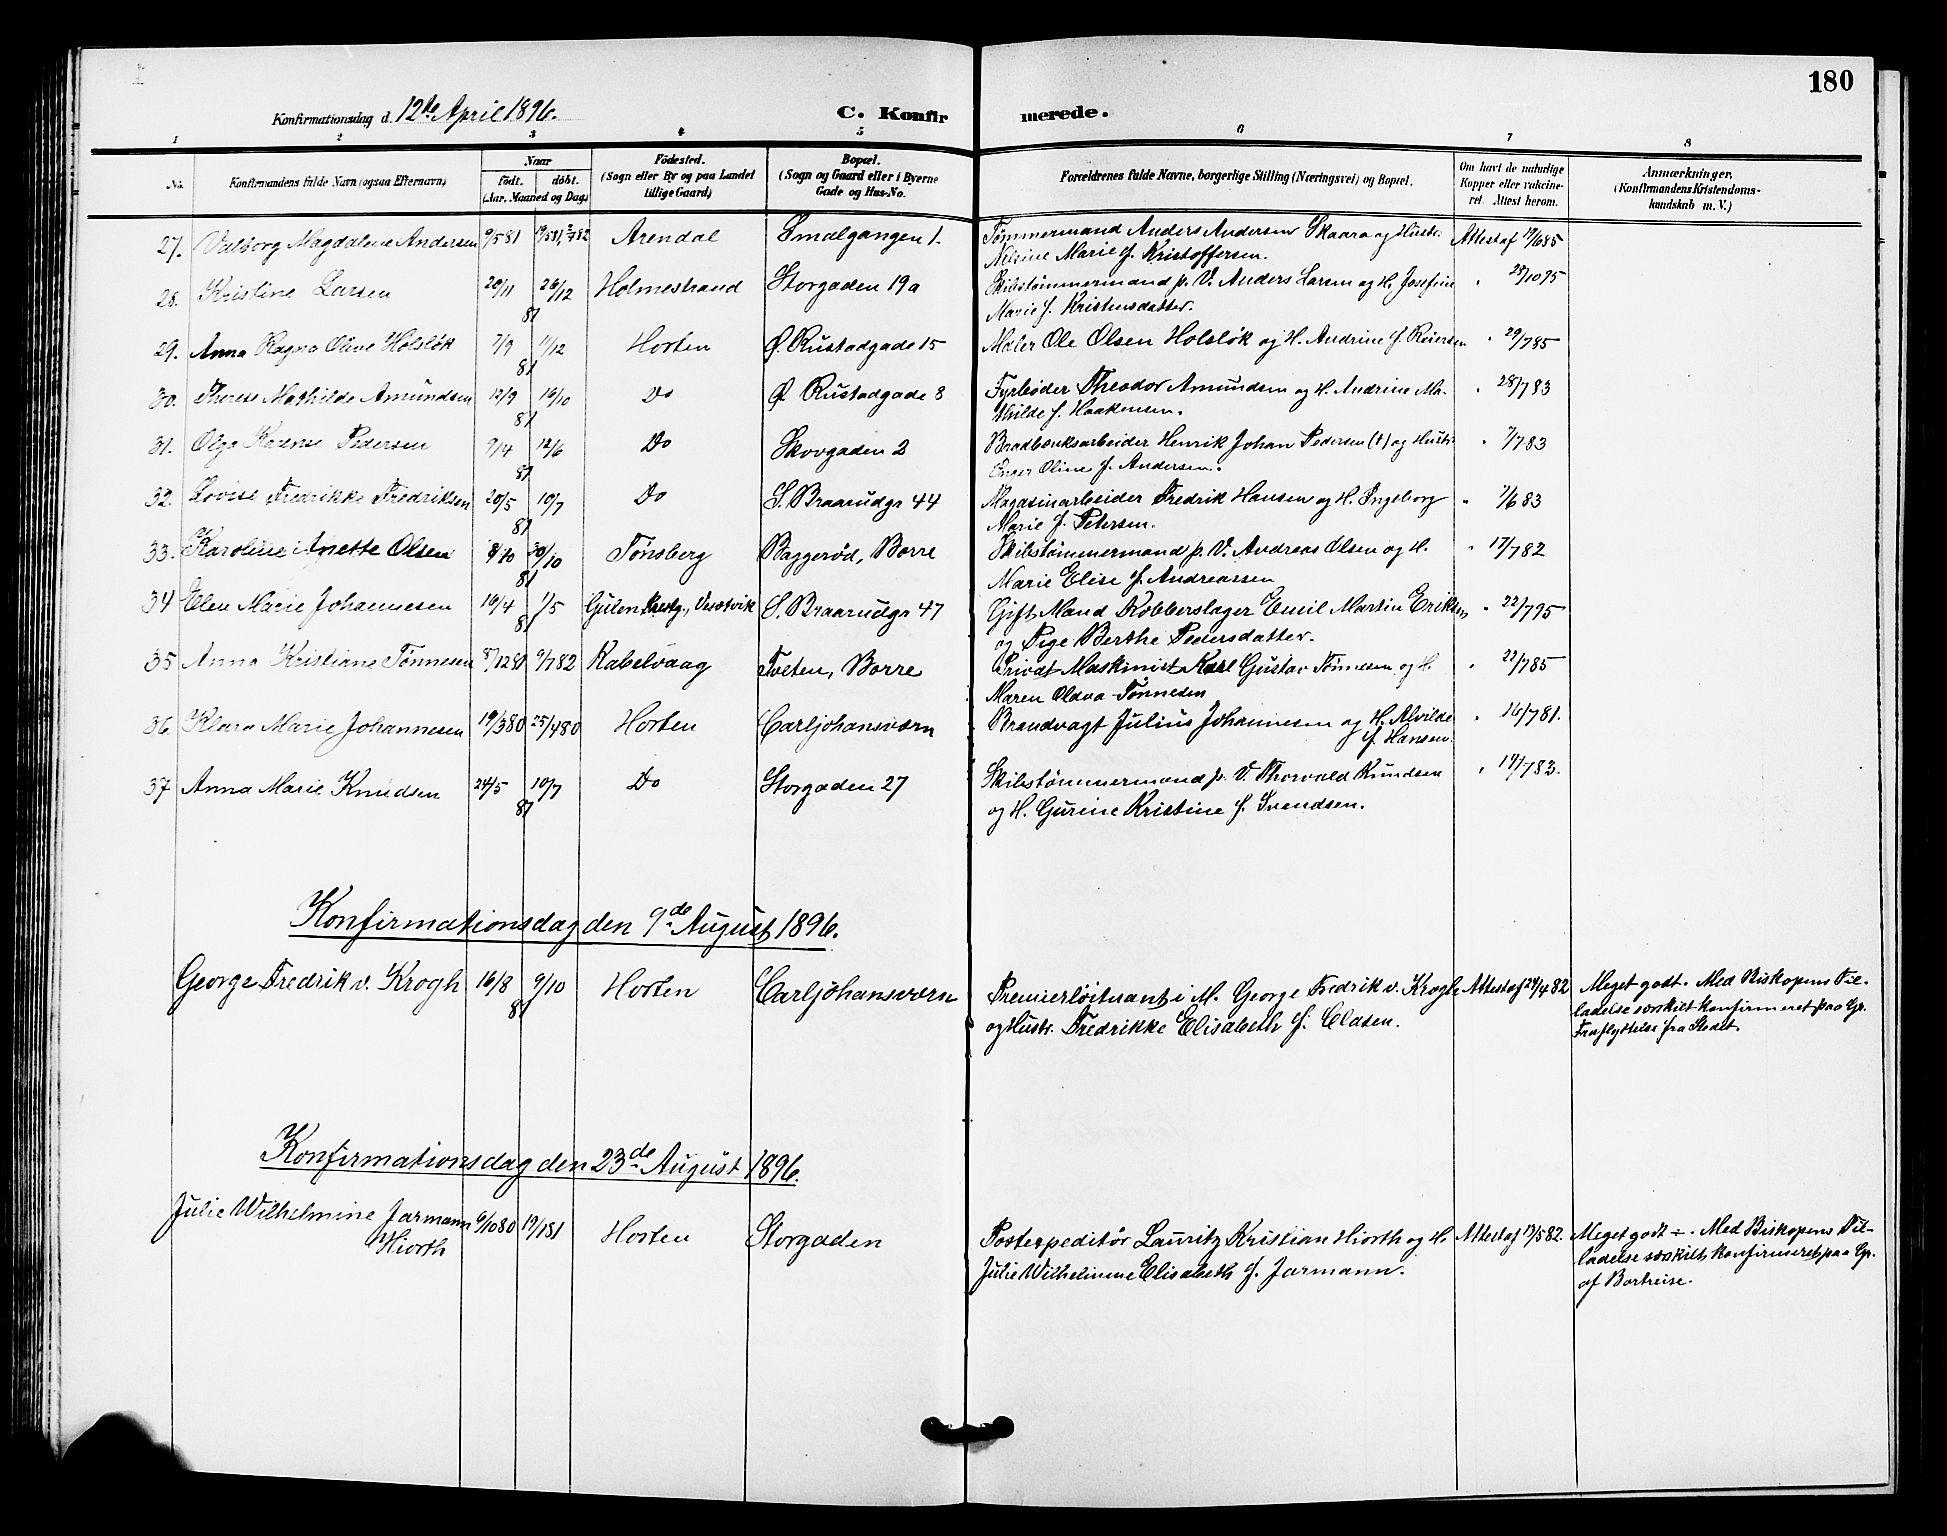 180
Konfirmationsdag d. 12te April 1896. C. Konfirmerede.
1 2 3 4 5 6 7 8
No. Konfirmandens fulde Navn (ogsaa Efternavn) Naar født. døbt. (Aar, Maaned og Dag) Fødested. (Sogn eller By og paa Landet tillige Gaard) Bopæl. (Sogn og Gaard eller i Byerne Gade og Hus-No. Forældrenes fulde Navne, borgerlige Stilling (Næringsvei) og Bopæl. Om havt de naturlige Kopper eller vakcineret. Attest herom. Anmærkninger, (Konfirmandens Kristendomskundskab m. V.)
27. Valborg Magdalene Andersen 9/581 19/581, 2/782 Arendal Smalgangen 1. Tømmermand Anders Andersen Skaara og Hustr. Attest af 19/685
Nilsine Marie f. Kristoffersen.
28. Kristine Larsen 20/11 26/12 81 Holmestrand Storgaden 19a Skibstømmermand p. V. Anders Larsen og H. Josefine " 28/1095
Marie f. Kristensdatter.
29. Anna Ragna Olive Holsløk 7/9 11/12 81 Horten Ø. Rustadgade 15 Maler Ole Olsen Holsløk og H. Andrine f. Reiersen " 29/785
30. Therese Mathilde Amundsen 12/9 16/10 81 Do Ø. Rustadgade 8 Fyrbøder Theodor Amundsen og H. Andrine Ma-
thilde f. Haakensen. " 28/783
31. Olga Karense Pedersen 9/4 12/6 81 Do Skovgaden 2 Bradbænksarbeider Henrik Johan Pedersen (t) og Hustr. " 7/783
Inger Oline f. Andersen.
32. Lovise Fredrikke Fredriksen 20/5 10/7 81 Do S. Braarudgr 44 Magasinarbeider Fredrik Hansen og H. Ingeborg " 7/683
Marie f. Petersen.
33. Karoline Anette Olsen 8/10 30/10 81 Tønsberg Baggerød, Borre Skibstømmermand p. V. Andreas Olsen og H. " 17/782
Marie Elise f. Andreassen
34 Elen Marie Johannesen 16/4 1/5 81 Gulen Prestg., S. Braarudgr 47 Gift Mand Kobberslager Emil Martin Eriksen " 22/795
og Pige Berthe Pedersdatter.
35 Anna Kristiane Tønnesen 8/1281 9/782 Kabelvaag Tveten, Borre Privat Maskinist Karl Gustav Tønnesen og H. " 22/785
Maren Olava Tønnesen
36 Klara Marie Johannesen 19/380 25/480 Horten Carljohansværn Brandvagt Julius Johannesen og H. Alvilde " 16/781.
f. Hansen.
37 Anna Marie Knudsen 24/5 10/7 81 Do Storgaden 27 Skibstømmermand p. V. Thorvald Knudsen " 14/783.
og H. Gurine Kristine f. Svendsen.
Konfirmationsdag den 9de August 1896.
George Fredrik v. Krogh 16/8 9/10 81 Horten Carljohansværn Premierløitnant i M. George Fredrik v. Krogh Attest af 24/482 Meget godt. Med Biskopens Til-
og Hustr. Fredrikke Elisabeth f. Clasen. ladelse særskilt konfirmeret paa Gr.
Fraflyttelse fra Stedet.
Konfirmationsdag den 23de August 1896.
Julie Wilhelmine Jarmann 6/1080 19/181 Horten Storgaden Postexpeditør Lauritz Kristian Hiorth og H. Attest af 13/582. Meget godt ÷. Med Biskopens Til-
Hiorth Julie Wilhelmine Elisabeth f. Jarmann. ladelse særskilt konfirmeret paa Gr.
af Bortreise.